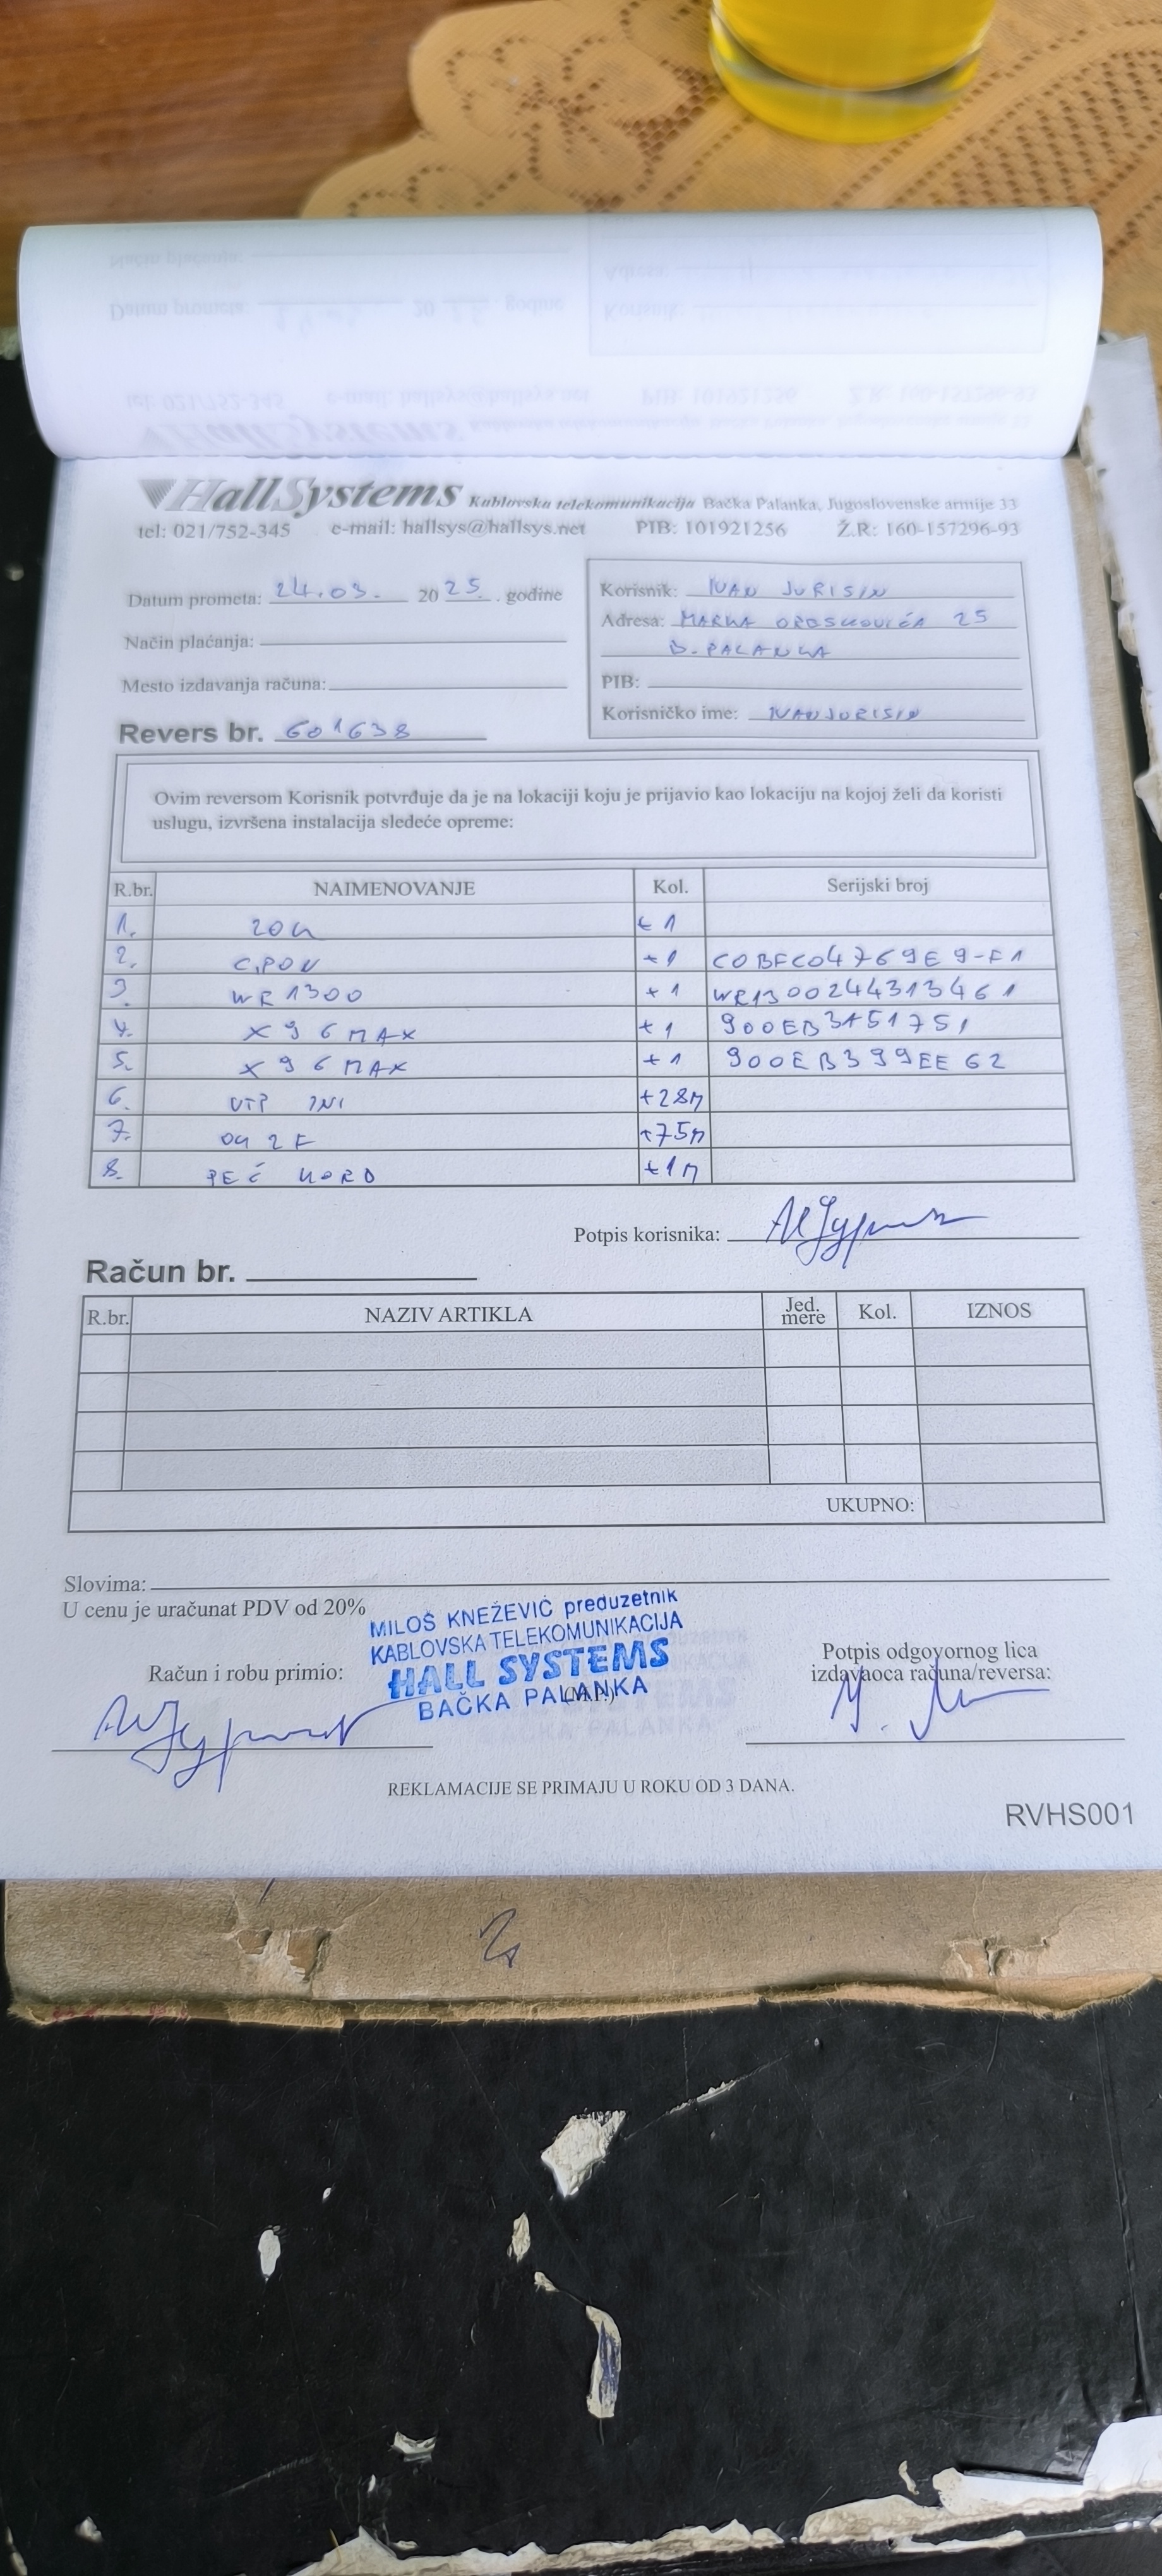 HallSystems Kablovska telekomunikacija Bačka Palanka, Jugoslovenske armije 33
tel: 021/752-345 e-mail: hallsys@hallsys.net PIB: 101921256 Ž.R: 160-157296-93
Datum prometa: 24.03. 2025. godine
Način plaćanja:
Mesto izdavanja računa:
Revers br. 601638
Korisnik: IVAN JURISIN
Adresa: MARKA OROSKOVIĆA 25
B. PALANKA
PIB:
Korisničko ime: IVANJURISIN
Ovim reversom Korisnik potvrđuje da je na lokaciji koju je prijavio kao lokaciju na kojoj želi da koristi
uslugu, izvršena instalacija sledeće opreme:
R.br. NAIMENOVANJE Kol. Serijski broj
1. +1
2. +1 C0BFC04769E9-F1
3. WR1300 +1 WR1300244313461
4. X96MAX +1 900EB3A51751
5. X96MAX +1 900EB399EE62
6. UTP +28M
7. 2F +75M
8. +1M
Potpis korisnika:
Račun br.
R.br. NAZIV ARTIKLA Jed. mere Kol. IZNOS
UKUPNO:
Slovima:
U cenu je uračunat PDV od 20%
MILOŠ KNEŽEVIĆ preduzetnik
KABLOVSKA TELEKOMUNIKACIJA
HALL SYSTEMS
BAČKA PALANKA
Račun i robu primio:
(M.P.)
Potpis odgovornog lica
izdavaoca računa/reversa:
REKLAMACIJE SE PRIMAJU U ROKU OD 3 DANA.
RVHS001